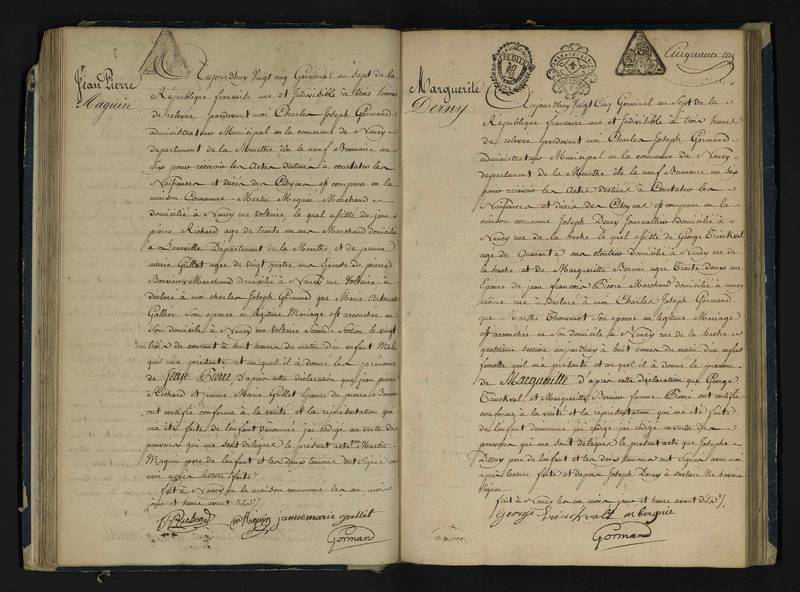 Jean Pierre
Maguin
Aujourdhuy Vingt cinq Germinal an Sept de la
République française une et Indivisible à trois heures
de relevée pardevant moi Charles Joseph Gormand
administrateur Municipal en la commune de Nancy
departement de la Meurthe élu le neuf Brumaire an
Six pour récevoir les Actes destinés à constater les
Naissances et décès des Citoyens est comparu en la
maison Commune Martin Maguin Marchand
domicilié à Nancy rue Voltaire, le quel assisté de jean
pierre Richard age de trente un ans Marchand domicilié
à Luneville Departement de la Meurthe, et de jeanne
marie Grillet agée de vingt quatre ans Epouse de pierre
Marchand domicilié à Nancy rue Voltaire a
déclaré à moi charles Joseph Gormand que Marie
Son épouse en legitime Mariage est accouchée en
Son domicile à Nancy rue Voltaire Seconde Section le vingt
trois du courant à huit heures du matin d'un enfant Male
qu'il m'a présenté et au quel il à donné les prénoms
de Jean Pierre, d'après cette déclaration que jean pierre
Richard et jeanne Marie Grillet Epouse de pierre
ont certifiée conforme à la vérité et la représentation qui
m'a été faite de l'enfant dénommé j'ai rédigé en vertu des
pouvoirs qui me sont délégués le présent acte que Martin
Maguin père de l'enfant et les deux temoins ont Signé avec
moi après lecture faite
fait à Nancy en la maison commune les an mois
jour et heure avant dits
J P Richard M Maguin jannemarie grillet
Gormand
Marguerite
Derny
Aujourdhuy Vingt Cinq Germinal an Sept de la
République française une et Indivisible à trois heures
de relevée pardevant moi Charles Joseph Gormand
administrateur Municipal en la commune de Nancy
departement de la Meurthe élu le neuf Brumaire an Six
pour récevoir les Actes destinés à Constater les
Naissances et décès des Citoyens est comparu en la
maison commune Joseph Derny Journallier domicilié à
Nancy rue de la hache le quel assisté de George
age de Quarante ans domicilié à Nancy rue de
la hache et de Marguerite agée Trente deux ans
Epouse de jean francois Marchand domicilié à nancy
même rue à Déclaré à moi Charles Joseph Gormand
que Marthe Thouvenot Son épouse en legitime Mariage
est accouchée en Son domicile à Nancy rue de la hache
quatrième section aujourdhuy à huit heures du matin d'un enfant
femelle qu'il m'a présenté et au quel il a donné le prénom
de Marguerite d'après cette déclaration que George
et Marguerite femme ont certifiée
conforme à la vérité et la représentation qui m'a été faite
de l'enfant dénommé j'ai rédigé en vertu des
pouvoirs qui me sont délégués le présent acte que Joseph
Derny père de l'enfant et les deux temoins ont signé avec moi
après lecture faite et Joseph Derny à déclaré Ne savoir
Signer
fait à Nancy les an mois jour et heure avant dits
George
Gormand